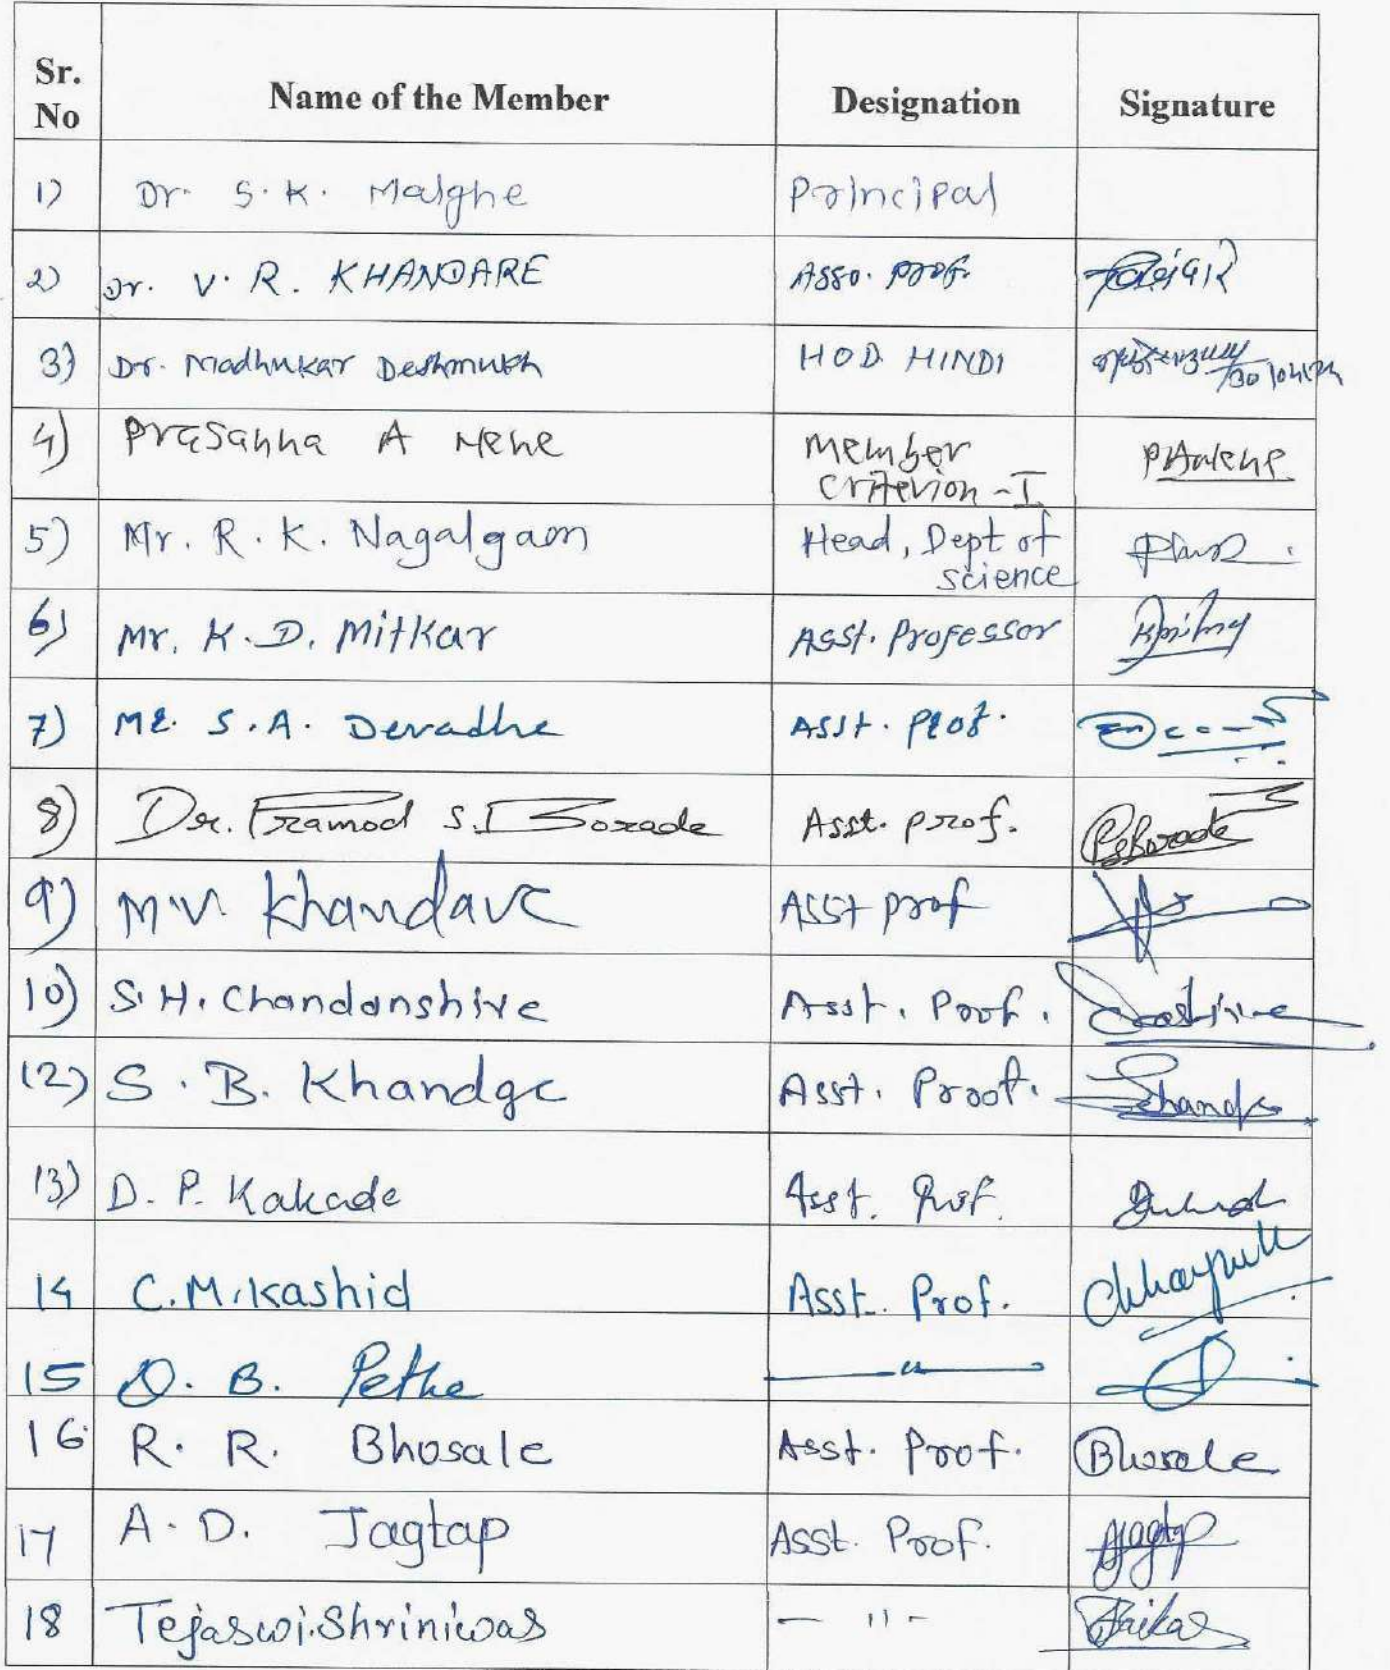 Sr. No Name of the Member Designation Signature
1) Dr. S. K. Malghe Principal
2) Dr. V. R. KHANDARE Asso. Prof.
3) Dr. Madhukar Deshmukh HOD HINDI
4) Prasanna A Nene Member Criterion - I
5) Mr. R. K. Nagalgaon Head, Dept of science
6) Mr. K. D. Mitkar Asst. Professor
7) Mr. S. A. Devadhe Asst. Prof.
8) Dr. Pramod S. Borade Asst. prof. PSBorade
9) M.V. Khandare Asst prof
10) S. H. Chandanshive Asst. Prof.
12) S. B. Khandge Asst. Proof.
13) D. P. Kakade Asst. Prof.
14 C. M. Kashid Asst. Prof.
15 D. B. Pethe — 〃 —
16 R. R. Bhosale Asst. Prof. Bhosale
17 A. D. Jagtap Asst. Prof. Jagtap
18 Tejaswi. Shriniwas — 〃 -